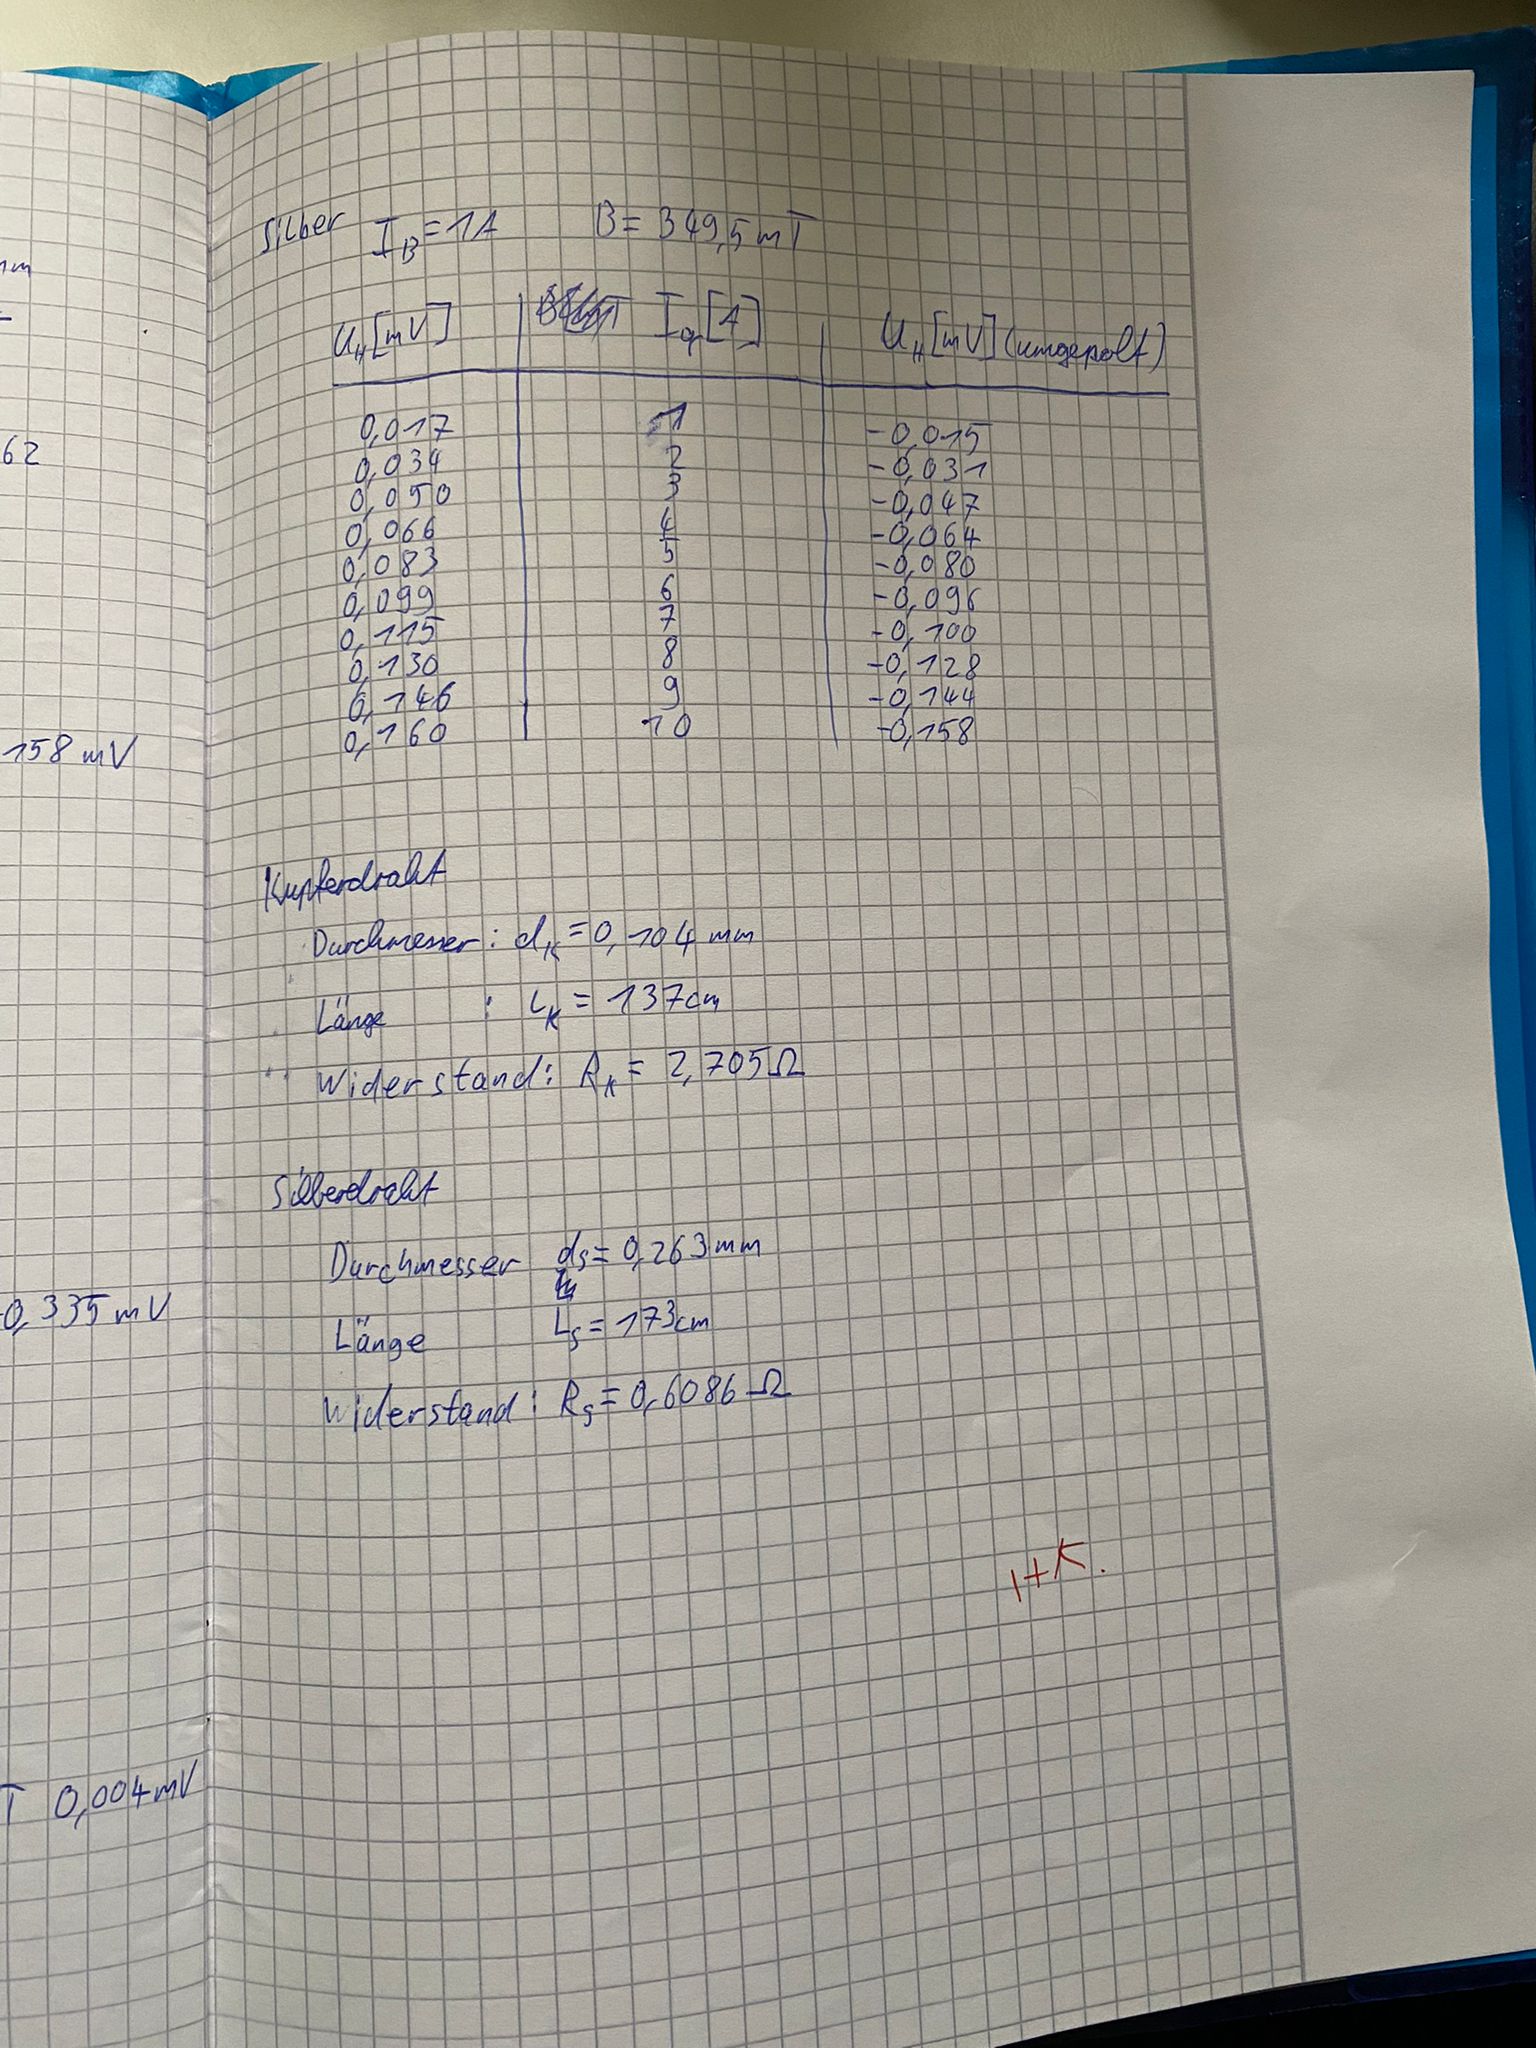 Silber I_B = 1A B = 349,5 mT
U_H [mV] I_q [A] U_H [mV] (umgepolt)
0,017 1 -0,015
0,034 2 -0,031
0,050 3 -0,047
0,066 4 -0,064
0,083 5 -0,080
0,099 6 -0,096
0,115 7 -0,100
0,130 8 -0,128
0,146 9 -0,144
0,160 10 -0,158
Kupferdraht
Durchmesser : d_K = 0,104 mm
Länge : L_K = 137cm
Widerstand : R_K = 2,705 Ω
Silberdraht
Durchmesser d_S = 0,263 mm
Länge L_S = 173cm
Widerstand : R_S = 0,6086 Ω
62
158 mV
0,335 mV
T 0,004 mV